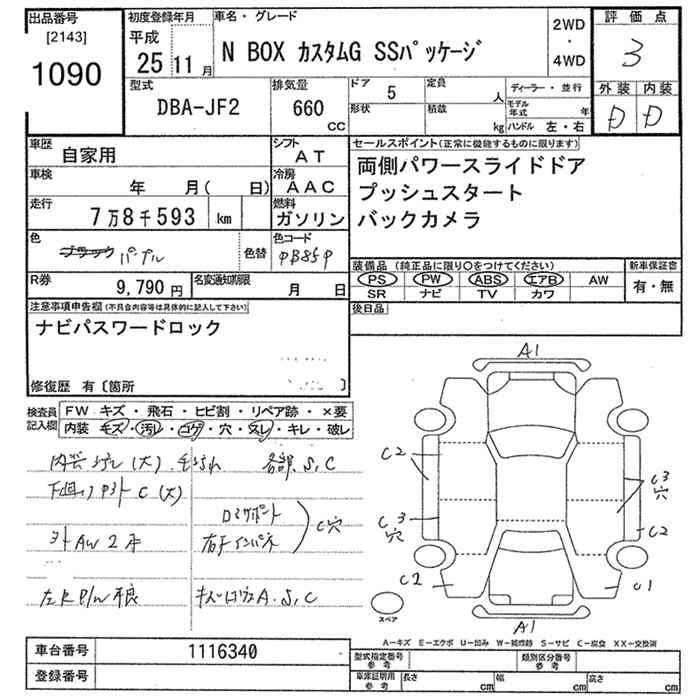 出品番号
[2143]
1090
初度登録年月
平成
25 11月
車名・グレード
N BOX カスタムG SSパッケージ
2WD
・
4WD
評価点
3
外装 内装
D D
型式
DBA-JF2
排気量
660
CC
ドア
5
形状
定員
人
積載
kg
ディーラー・並行
モデル年式 年
ハンドル 左・右
車歴
自家用
シフト
AT
車検
年 月( 日)
冷房
AAC
走行
7万8千593 km
燃料
ガソリン
色
ブラック パープル
色替
色コード
PB85P
R券
9,790円
名変通知期限
月 日
セールスポイント(正常に機能するものに限ります)
両側パワースライドドア
プッシュスタート
バックカメラ
装備品 (純正品に限り○をつけてください)
PS PW ABS エアB AW
SR ナビ TV カワ
新車保証書
有・無
後日品
注意事項申告欄(不具合内容等は具体的に記入して下さい)
ナビパスワードロック
修復歴 有〔箇所 〕
検査員記入欄
FW キズ・飛石・ヒビ割・リペア跡・×要
内装 キズ・汚レ・コゲ・穴・スレ・キレ・破レ
各部 S、C
C(大)
C穴
AW2本
左R P/W不良
A、S、C
A1
C2
C3
穴
C3
穴
C2
C2
C1
A1
スペア
A－キズ E－エクボ U－凹み W－補修跡 S－サビ C－腐食 XX－交換済
車台番号
1116340
登録番号
型式指定番号
参考
類別区分番号
参考
車庫証明用
参考
長さ cm
幅 cm
高さ cm